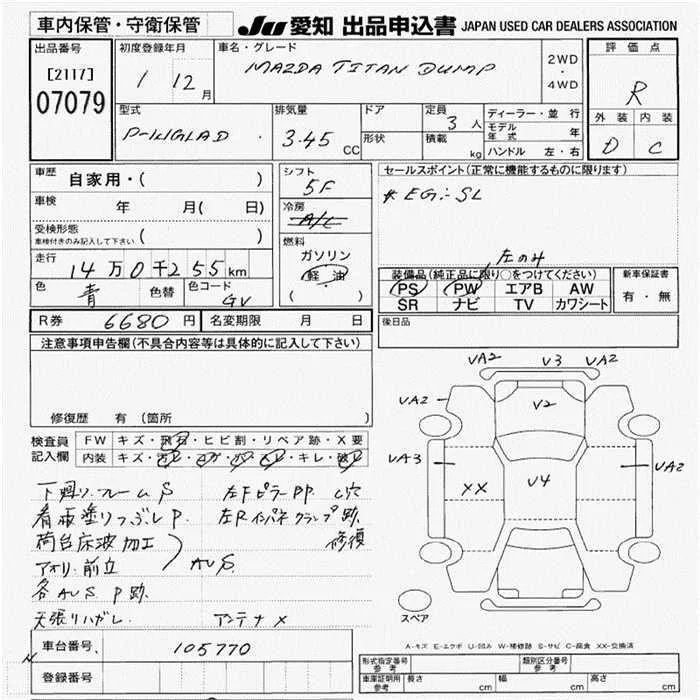 車内保管・守衛保管
JU 愛知 出品申込書 JAPAN USED CAR DEALERS ASSOCIATION
出品番号
[2117]
07079
初度登録年月
1 12 月
車名・グレード
MAZDA TITAN DUMP
2WD
・
4WD
評価点
R
外装 内装
D C
型式
排気量
3.45 CC
ドア
形状
定員
3 人
積載
kg
ディーラー・並行
モデル年式 年
ハンドル 左・右
車歴 自家用・( )
車検 年 月( 日)
受検形態
車検付きのみ記入して下さい ( )
走行 14万0千255km
色 青 色替 色コード GV
シフト
5F
冷房
A/C
燃料
ガソリン
軽油
( )
セールスポイント(正常に機能するものに限ります)
# EG:SL
左のみ
装備品(純正品に限り○をつけてください)
PS PW エアB AW
SR ナビ TV カワシート
新車保証書
有・無
R券 6680円 名変期限 月 日
後日品
注意事項申告欄(不具合内容等は具体的に記入して下さい)
修復歴 有 (箇所
検査員記入欄
FW キズ・飛石・ヒビ割・リペア跡・X要
内装 キズ・汚レ・コゲ・穴・スレ・キレ・破レ
下廻リ.フレームS 左FピラーPP. C穴
看板塗りつぶしP. 左Rインパネクランプ跡.
荷台床波加工 修復
アオリ.前立 AUS.
各AUS P跡.
天張リハガレ. アンテナX
VA2 V3 VA2
VA2 V2
VA3 XX V4 VA2
スペア
A-キズ E-エクボ U-凹み W-補修跡 S-サビ C-腐食 XX-交換済
車台番号 105770
登録番号
形式指定番号 参考
類別区分番号 参考
車庫証明用 参考 長さ cm 幅 cm 高さ cm